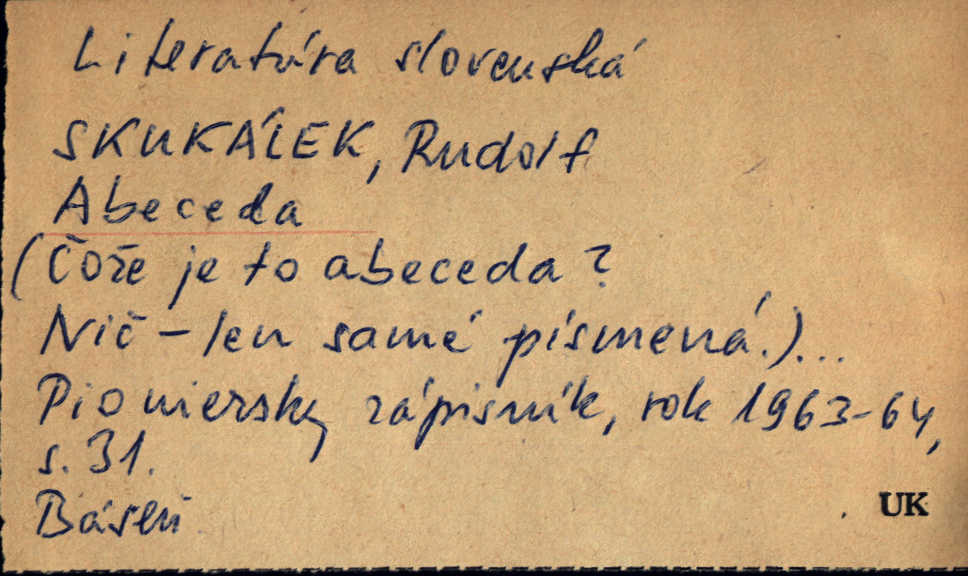 Literatúra slovenská
SKUKÁLEK, Rudolf
Abeceda
(Čože je to abeceda?
Nič – len samé písmená!)...
Pioniersky zápisník, rok 1963-64,
s. 31.
Báseň
UK